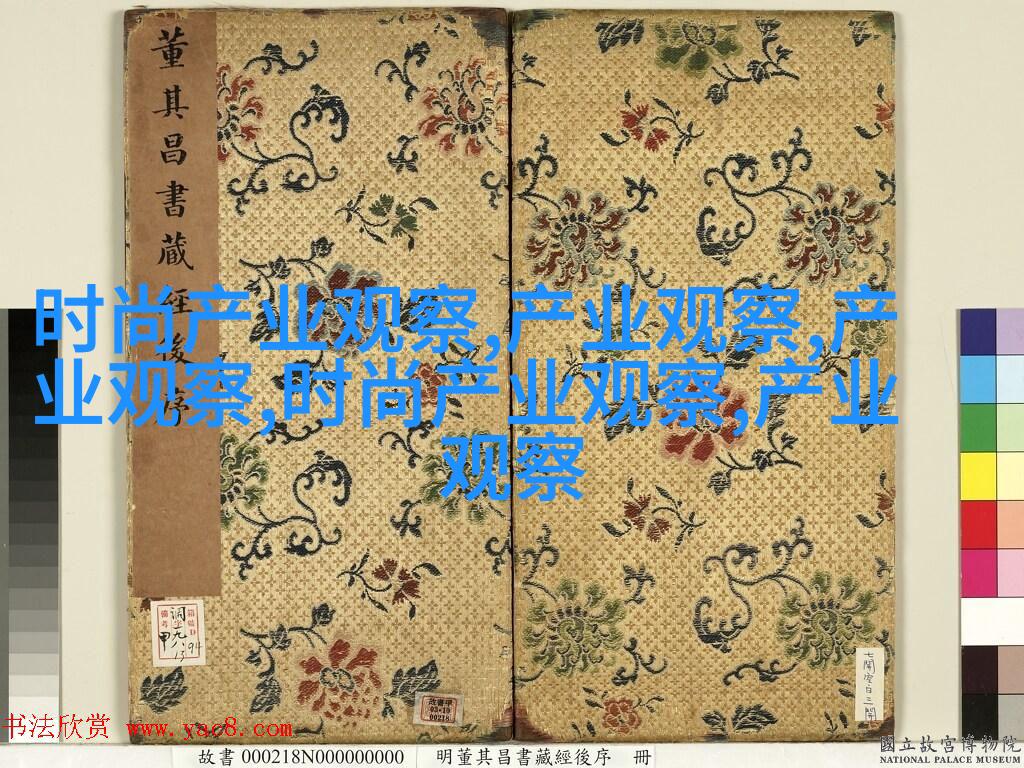 董其昌書藏經後序
时尚产业观察,产业观察,产
业观察,时尚产业观察,产业
观察
故書甲
03-10
00218
七開空白三開
书法欣赏 www.yac8.com
故書 000218N000000000 明董其昌書藏經後序 冊
國立故宮博物院
NATIONAL PALACE MUSEUM